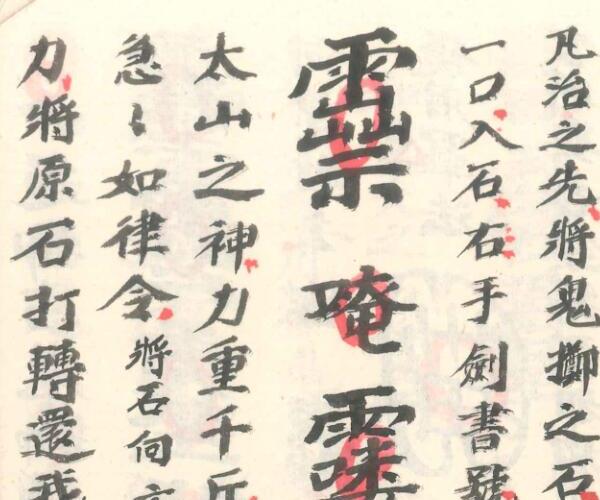 凡治之先將鬼擲之石
一口入石右手劍書號
唵
太山之神力重千斤
急〻如律令將石向
力將原石打轉還我